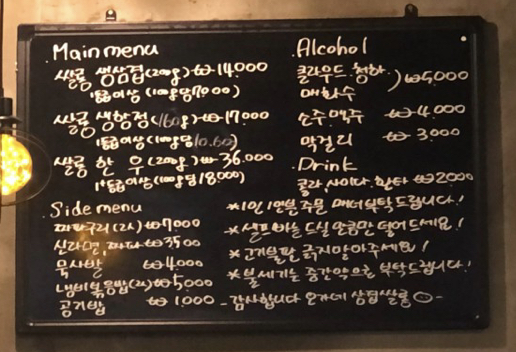 Main menu
쌀롱 생삼겹(200g) ₩14.000
1등급이상 (100g당7000)
쌀롱 생항정(160g) ₩17.000
1등급이상 (100g당10.60)
쌀롱 한우(200g) ₩36.000
1+등급이상 (100g당18.000)
Side menu
짜파구리(2人) ₩7000
신라면,짜파 ₩3500
묵사발 ₩4.000
냄비볶음밥(2人) ₩5000
공기밥 ₩1.000
Alcohol
클라우드.청하
매화수 ) ₩5,000
소주.맥주 ₩4.000
막걸리 ₩3.000
Drink
콜라,사이다.환타 ₩2000
*1인 1인분 주문 부탁드립니다!
*셀프바는 드실만큼만 덜어드세요!
*고기불판 긁지말아주세요!
*불세기는 중간약으로 부탁드립니다!
-감사합니다 삼겹쌀롱-